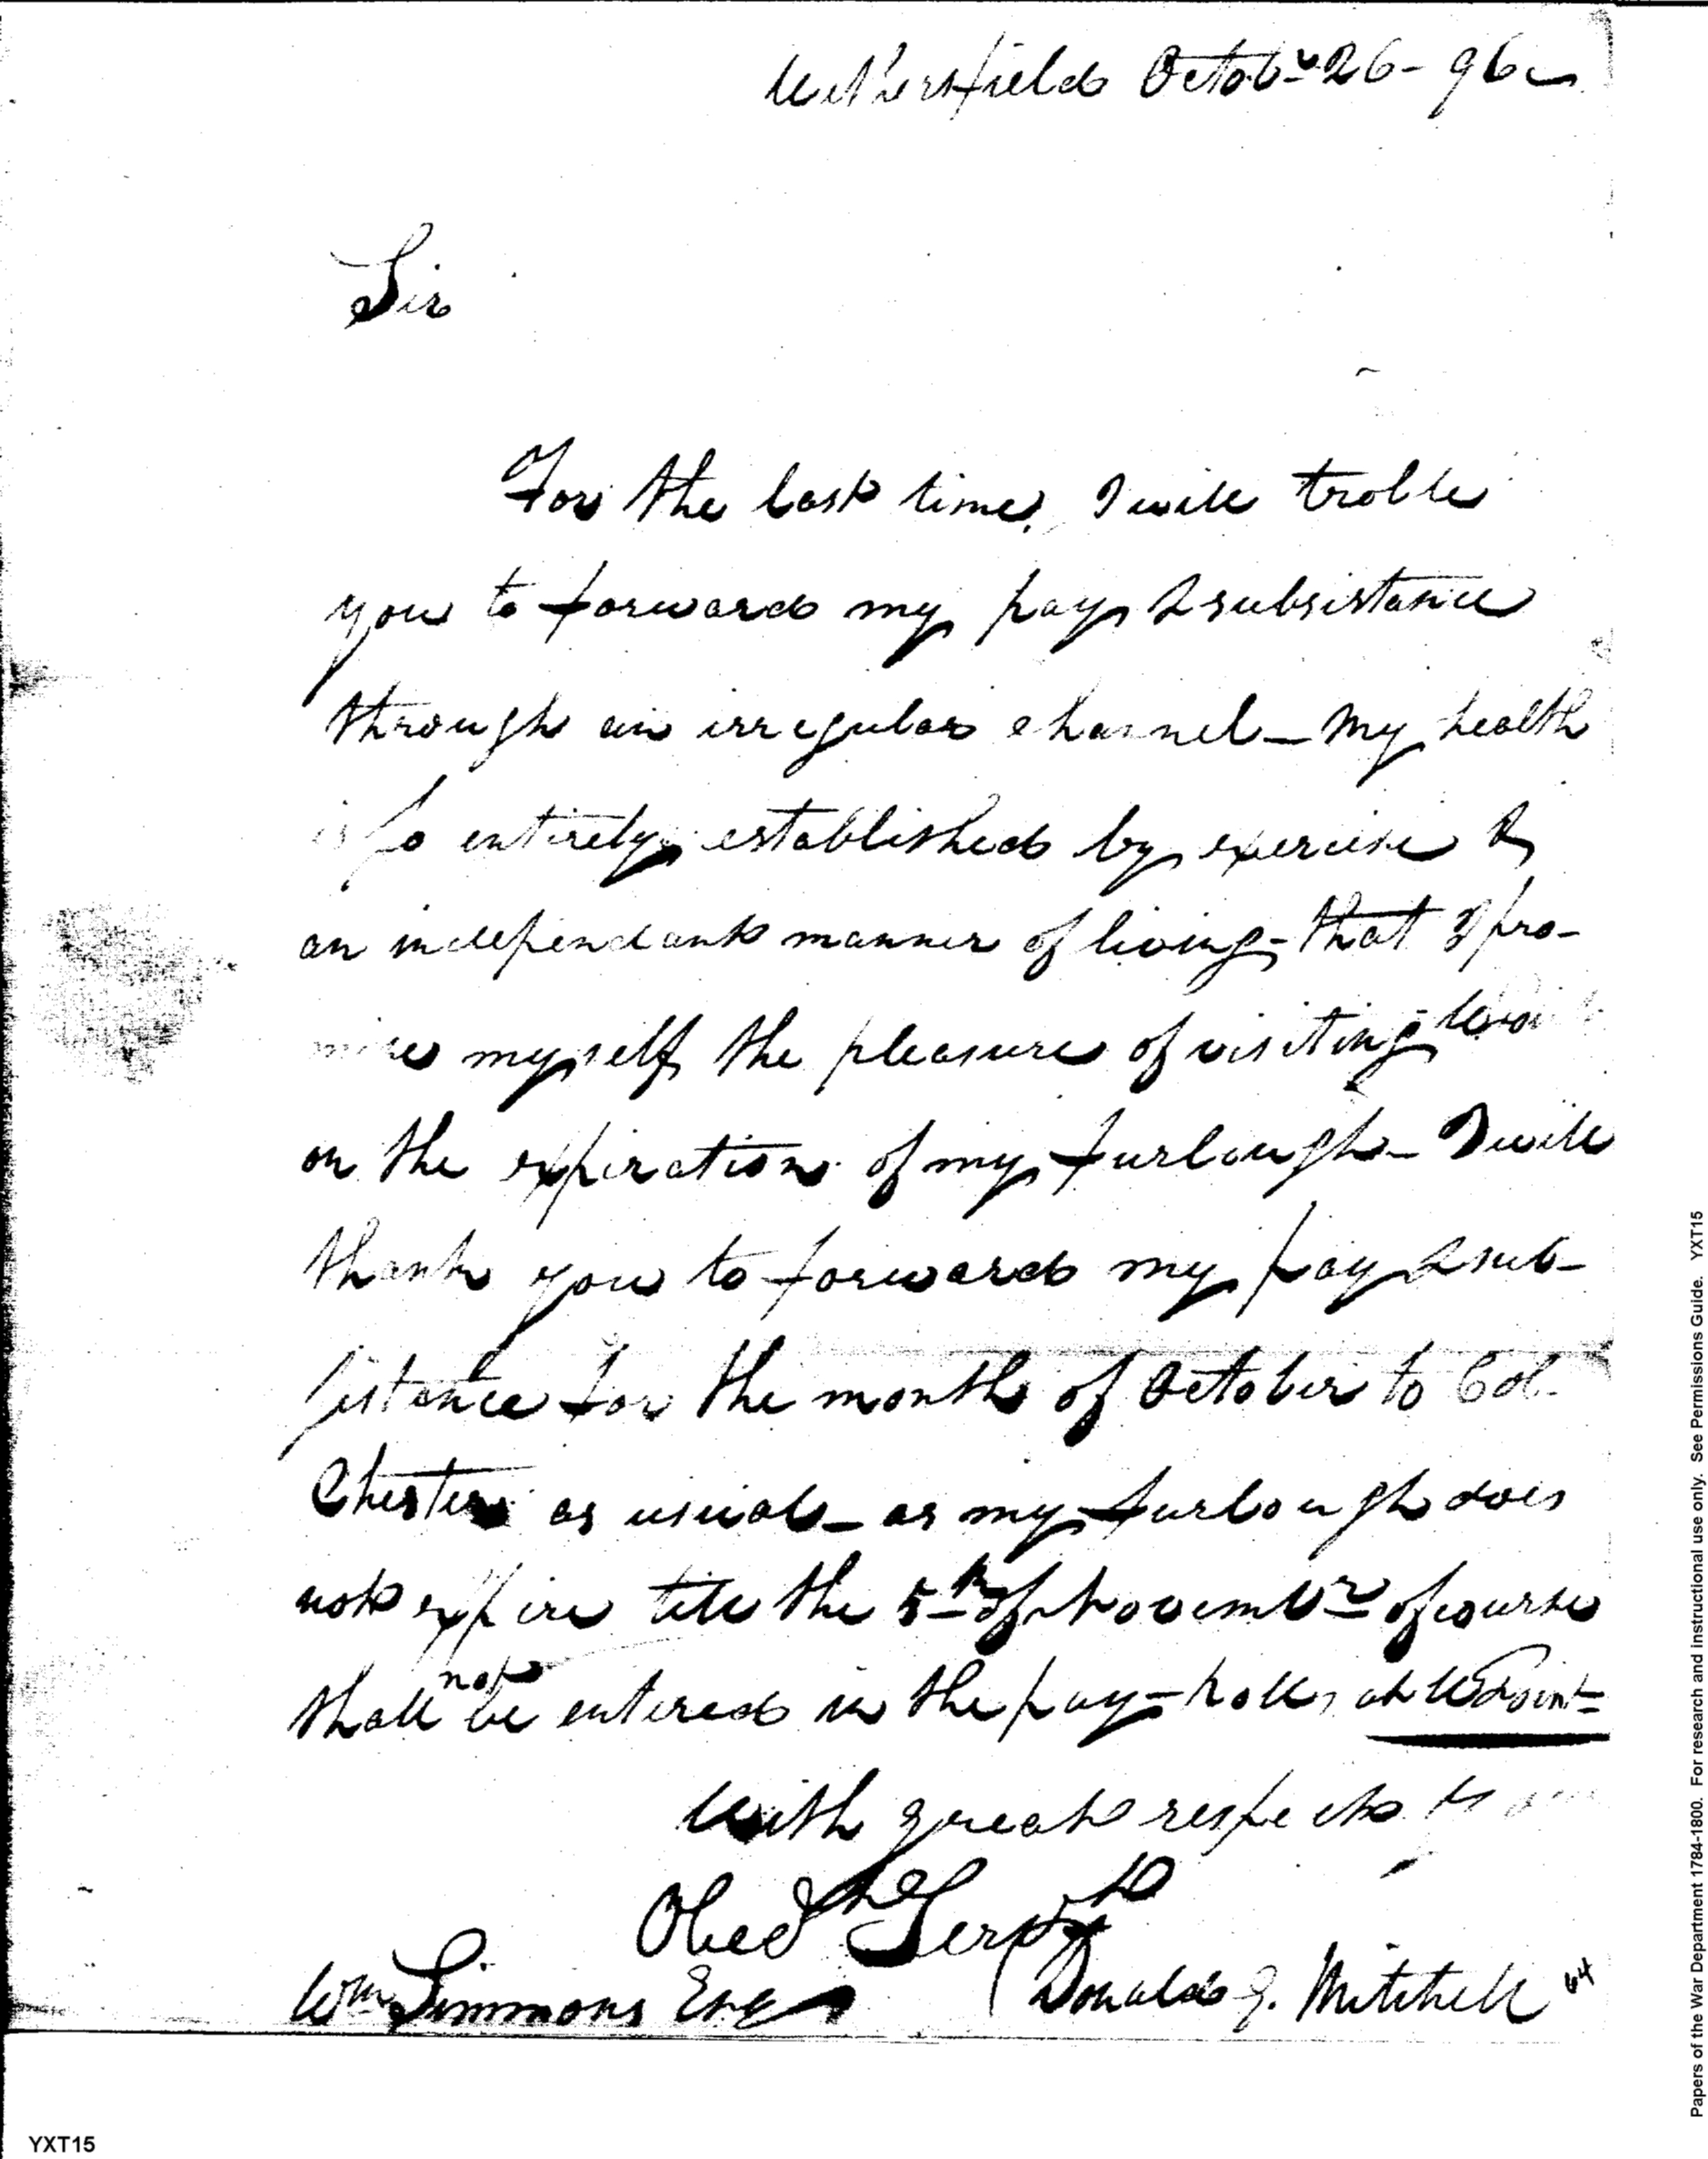 Wethersfield Octobr 26 - 96
Sir
For the last time, I will troble
you to forward my pay & subsistance
through an irregular channel - My health
is so entirely established by exercise &
an independant manner of living - that I pro-
mise myself the pleasure of visiting
on the expiration of my furlough - I will
thank you to forward my pay & sub-
sistence for the month of October to Col.
Chester as usual - as my furlough does
not expire till the 5th of Novembr of course
shall not be entered in the pay-roll, at W Point -
With great respect
Obedt Servt
Wm Simmons Esq
Donald G. Mitchell
64
YXT15
Papers of the War Department 1784-1800. For research and instructional use only. See Permissions Guide. YXT15